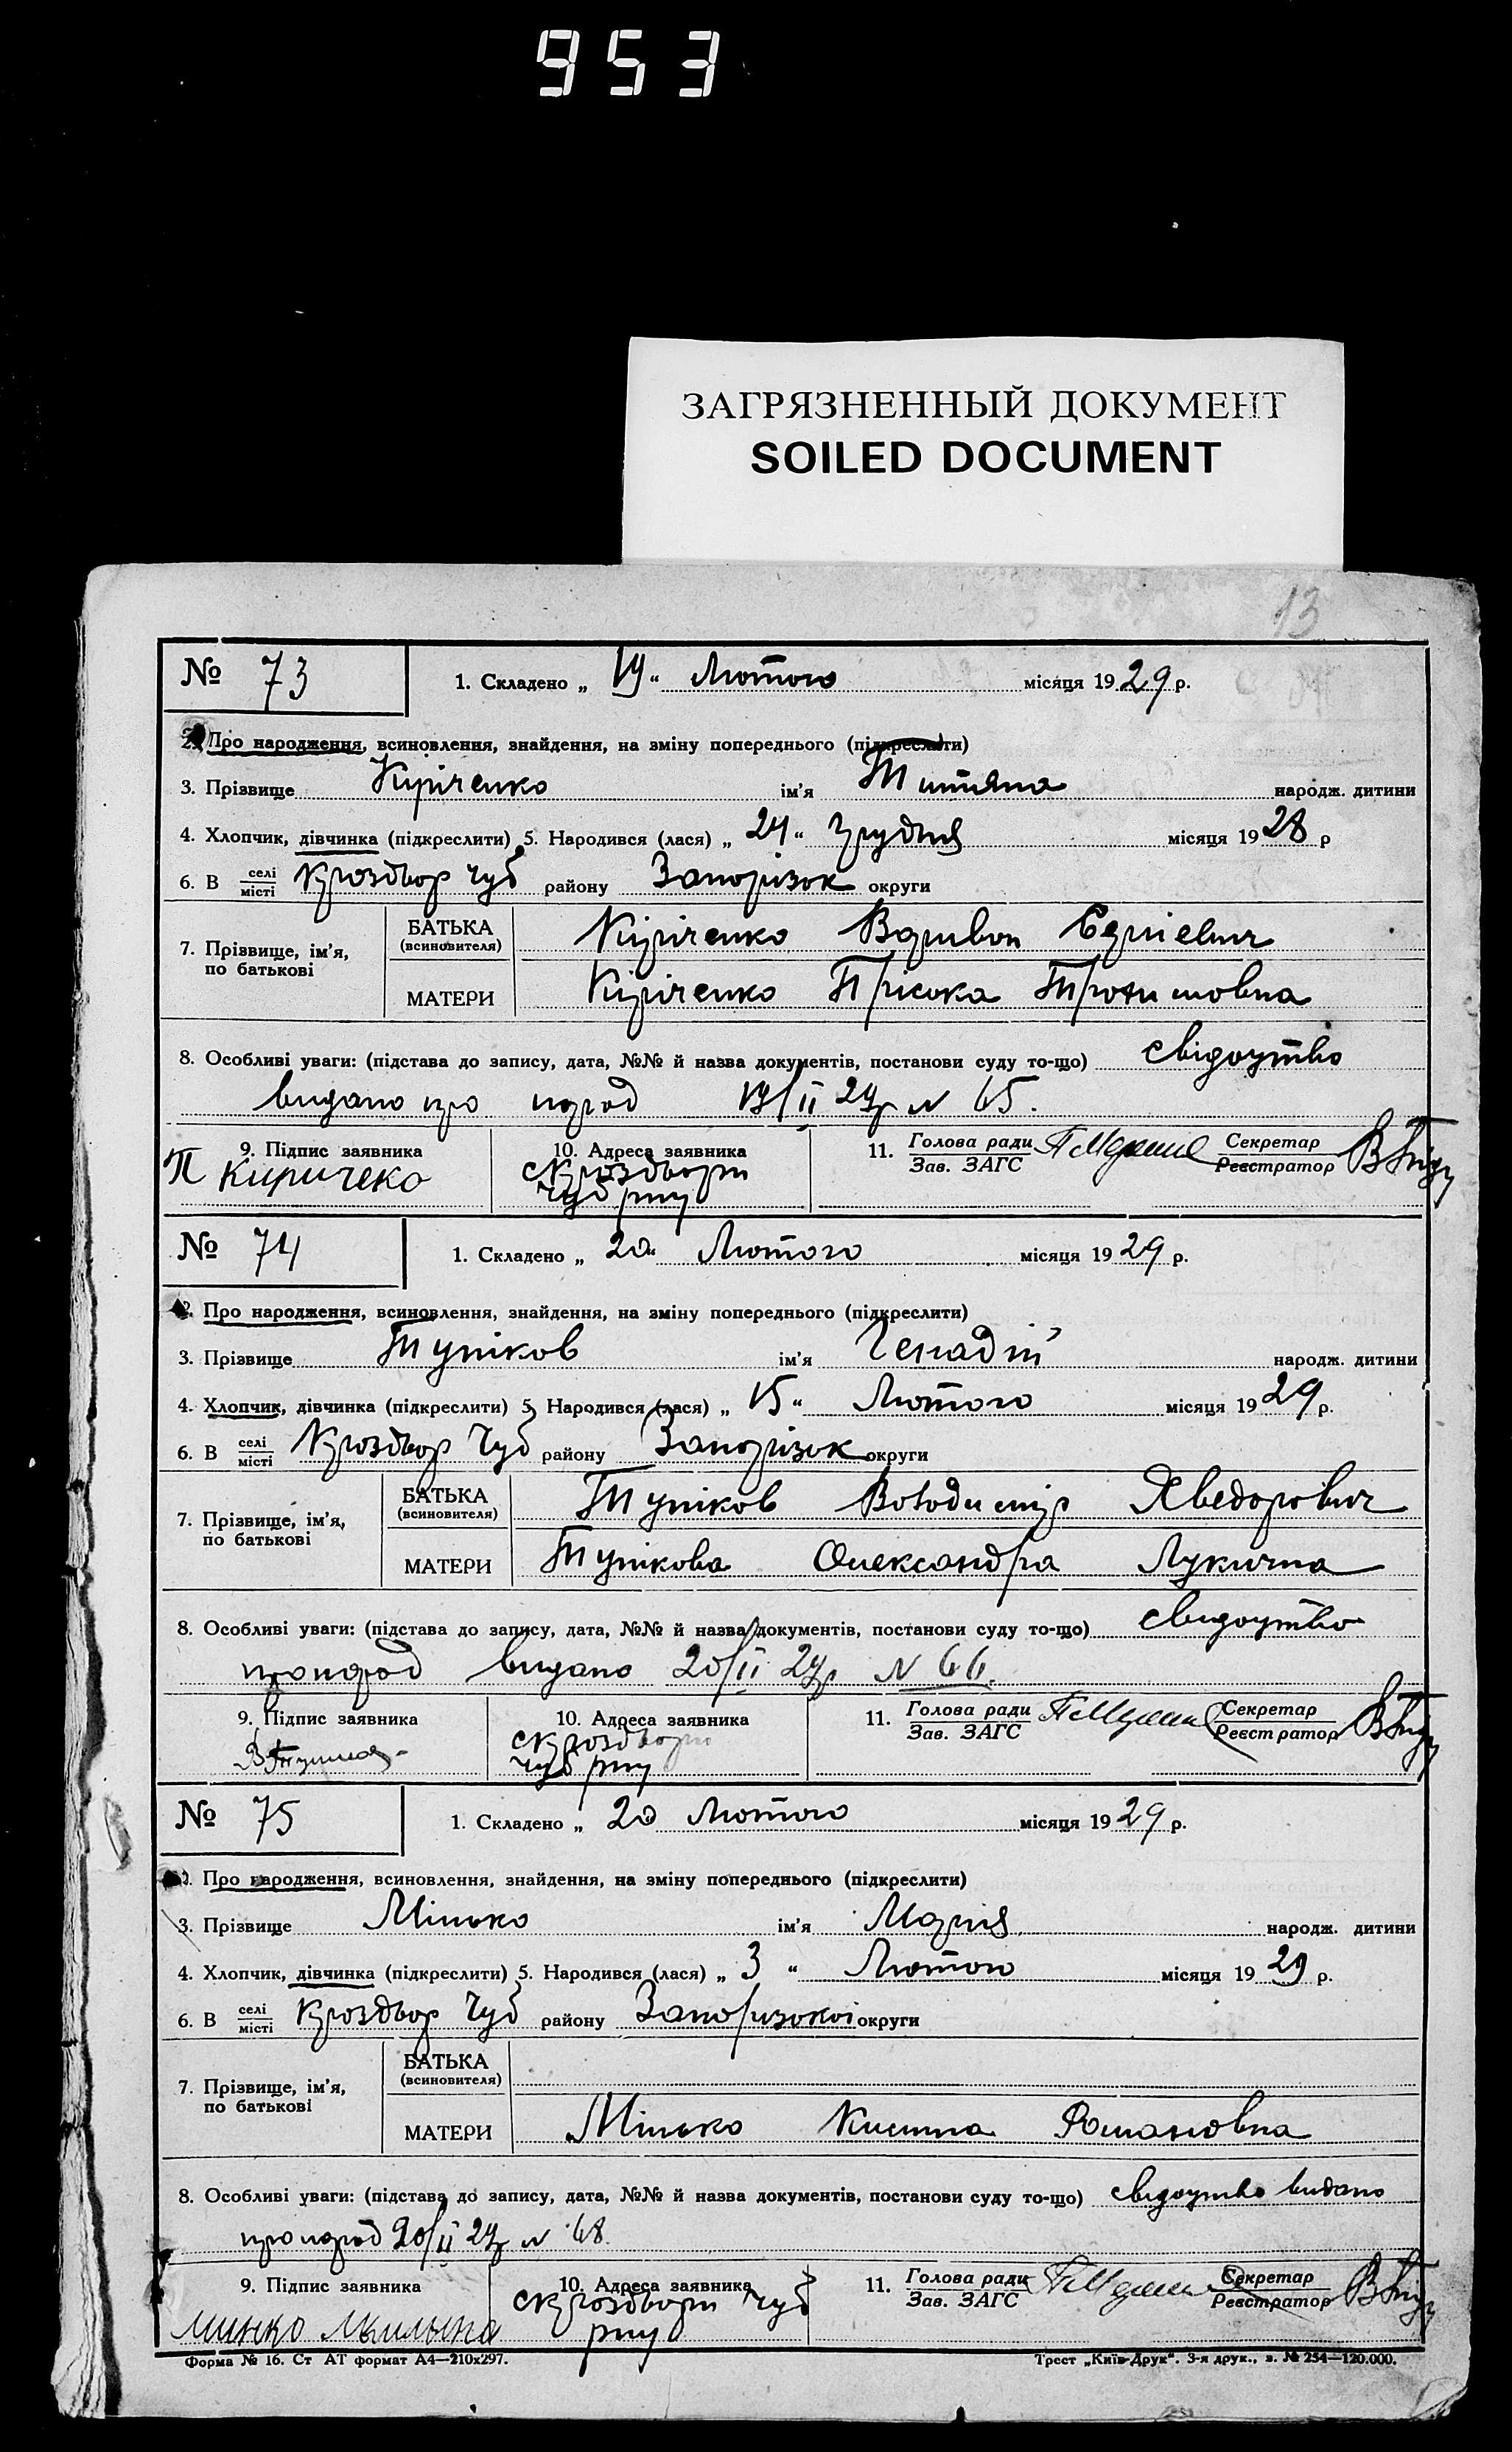 953
ЗАГРЯЗНЕННЫЙ ДОКУМЕНТ
SOILED DOCUMENT
13
№ 73 1. Складено „ 19 “ Лютого місяця 1929 р.
2. Про народження, всиновлення, знайдення, на зміну попереднього (підкреслити)
3. Прізвище Кіріченко ім'я Титяна народж. дитини
4. Хлопчик, дівчинка (підкреслити) 5. Народився (лася) „ 24 “ Грудня місяця 1928 р
6. В селі місті Кгроздвор Чуб району Запорізок округи
7. Прізвище, ім'я, по батькові
БАТЬКА (всиновителя) Кіріченко
МАТЕРИ Кіріченко Пріська
8. Особливі уваги: (підстава до запису, дата, №№ й назва документів, постанови суду то-що) свідоцтво
видано про народ 19/II 29р N 65.
9. Підпис заявника 10. Адреса заявника 11. Голова ради Зав. ЗАГС Секретар Реєстратор
П Киричеко
№ 74 1. Складено „ 20 “ Лютого місяця 1929 р.
2. Про народження, всиновлення, знайдення, на зміну попереднього (підкреслити)
3. Прізвище Тупіков ім'я Генадій народж. дитини
4. Хлопчик, дівчинка (підкреслити) 5. Народився (лася) „ 15 “ Лютого місяця 1929 р.
6. В селі місті Кгроздвор Чуб району Запорізок округи
7. Прізвище, ім'я, по батькові
БАТЬКА (всиновителя) Тупіков Володимір Хведорович
МАТЕРИ Тупікова Олександра Лукична
8. Особливі уваги: (підстава до запису, дата, №№ й назва документів, постанови суду то-що) свидоцтво
про народ видано 20/II 29р N 66.
9. Підпис заявника 10. Адреса заявника 11. Голова ради Зав. ЗАГС Секретар Реєстратор
№ 75 1. Складено „ 20 Лютого місяця 1929 р.
2. Про народження, всиновлення, знайдення, на зміну попереднього (підкреслити)
3. Прізвище Мінько ім'я Марія народж. дитини
4. Хлопчик, дівчинка (підкреслити) 5. Народився (лася) „ 3 “ Лютого місяця 1929 р.
6. В селі місті Кгроздвор Чуб району Запоризокої округи
7. Прізвище, ім'я, по батькові
БАТЬКА (всиновителя)
МАТЕРИ Мінько Романовна
8. Особливі уваги: (підстава до запису, дата, №№ й назва документів, постанови суду то-що) свідоцтво видано
про народ 20/II 29р N 68.
9. Підпис заявника 10. Адреса заявника 11. Голова ради Зав. ЗАГС Секретар Реєстратор
Форма № 16. Ст АТ формат А4—210х297. Трест „Київ-Друк“. 3-я друк., з. № 254—120.000.